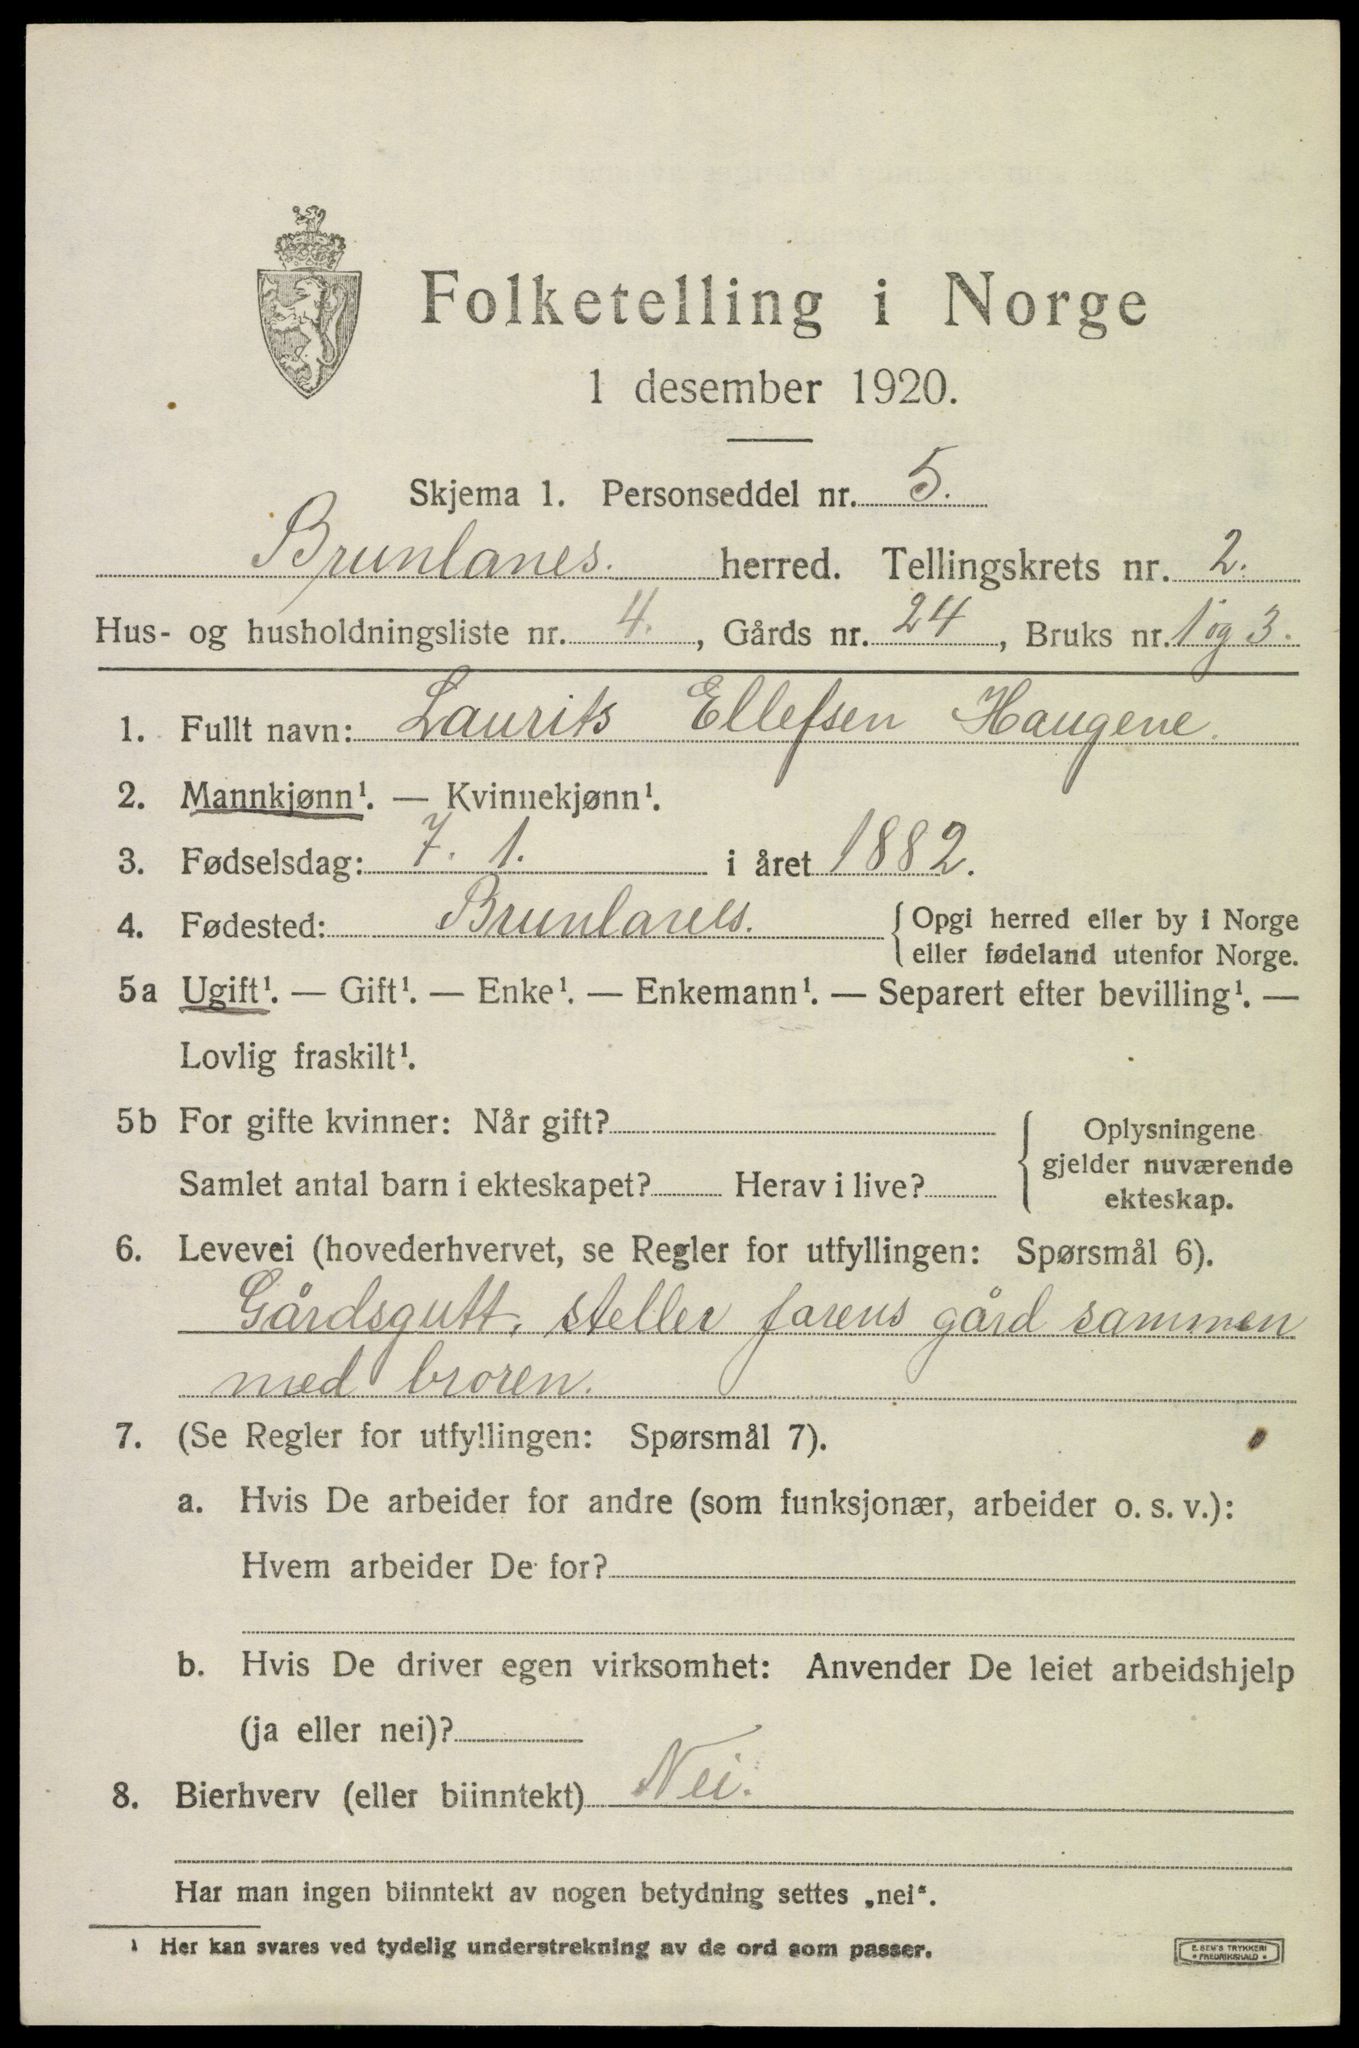 Folketelling i Norge
1 desember 1920.
Skjema 1. Personseddel nr. 5.
Brunlanes. herred. Tellingskrets nr. 2.
Hus- og husholdningsliste nr. 4., Gårds nr. 24, Bruks nr. 1 og 3.
1. Fullt navn: Laurits Ellefsen Haugene.
2. Mannkjønn¹. — Kvinnekjønn¹.
3. Fødselsdag: 7. 1. i året 1882.
4. Fødested: Brunlanes. { Opgi herred eller by i Norge
eller fødeland utenfor Norge.
5a Ugift¹. — Gift¹. — Enke¹. — Enkemann¹. — Separert efter bevilling¹. —
Lovlig fraskilt¹.
5b For gifte kvinner: Når gift?
Samlet antal barn i ekteskapet? Herav i live?
Oplysningene
gjelder nuværende
ekteskap.
6. Levevei (hovederhvervet, se Regler for utfyllingen: Spørsmål 6).
Gårdsgutt, steller farens gård sammen
med broren.
7. (Se Regler for utfyllingen: Spørsmål 7).
a. Hvis De arbeider for andre (som funksjonær, arbeider o. s. v.):
Hvem arbeider De for?
b. Hvis De driver egen virksomhet: Anvender De leiet arbeidshjelp
(ja eller nei)?
8. Bierhverv (eller biinntekt) Nei.
Har man ingen biinntekt av nogen betydning settes „nei“.
¹ Her kan svares ved tydelig understrekning av de ord som passer.
E. SEM'S TRYKKERI
* FREDRIKSHALD *